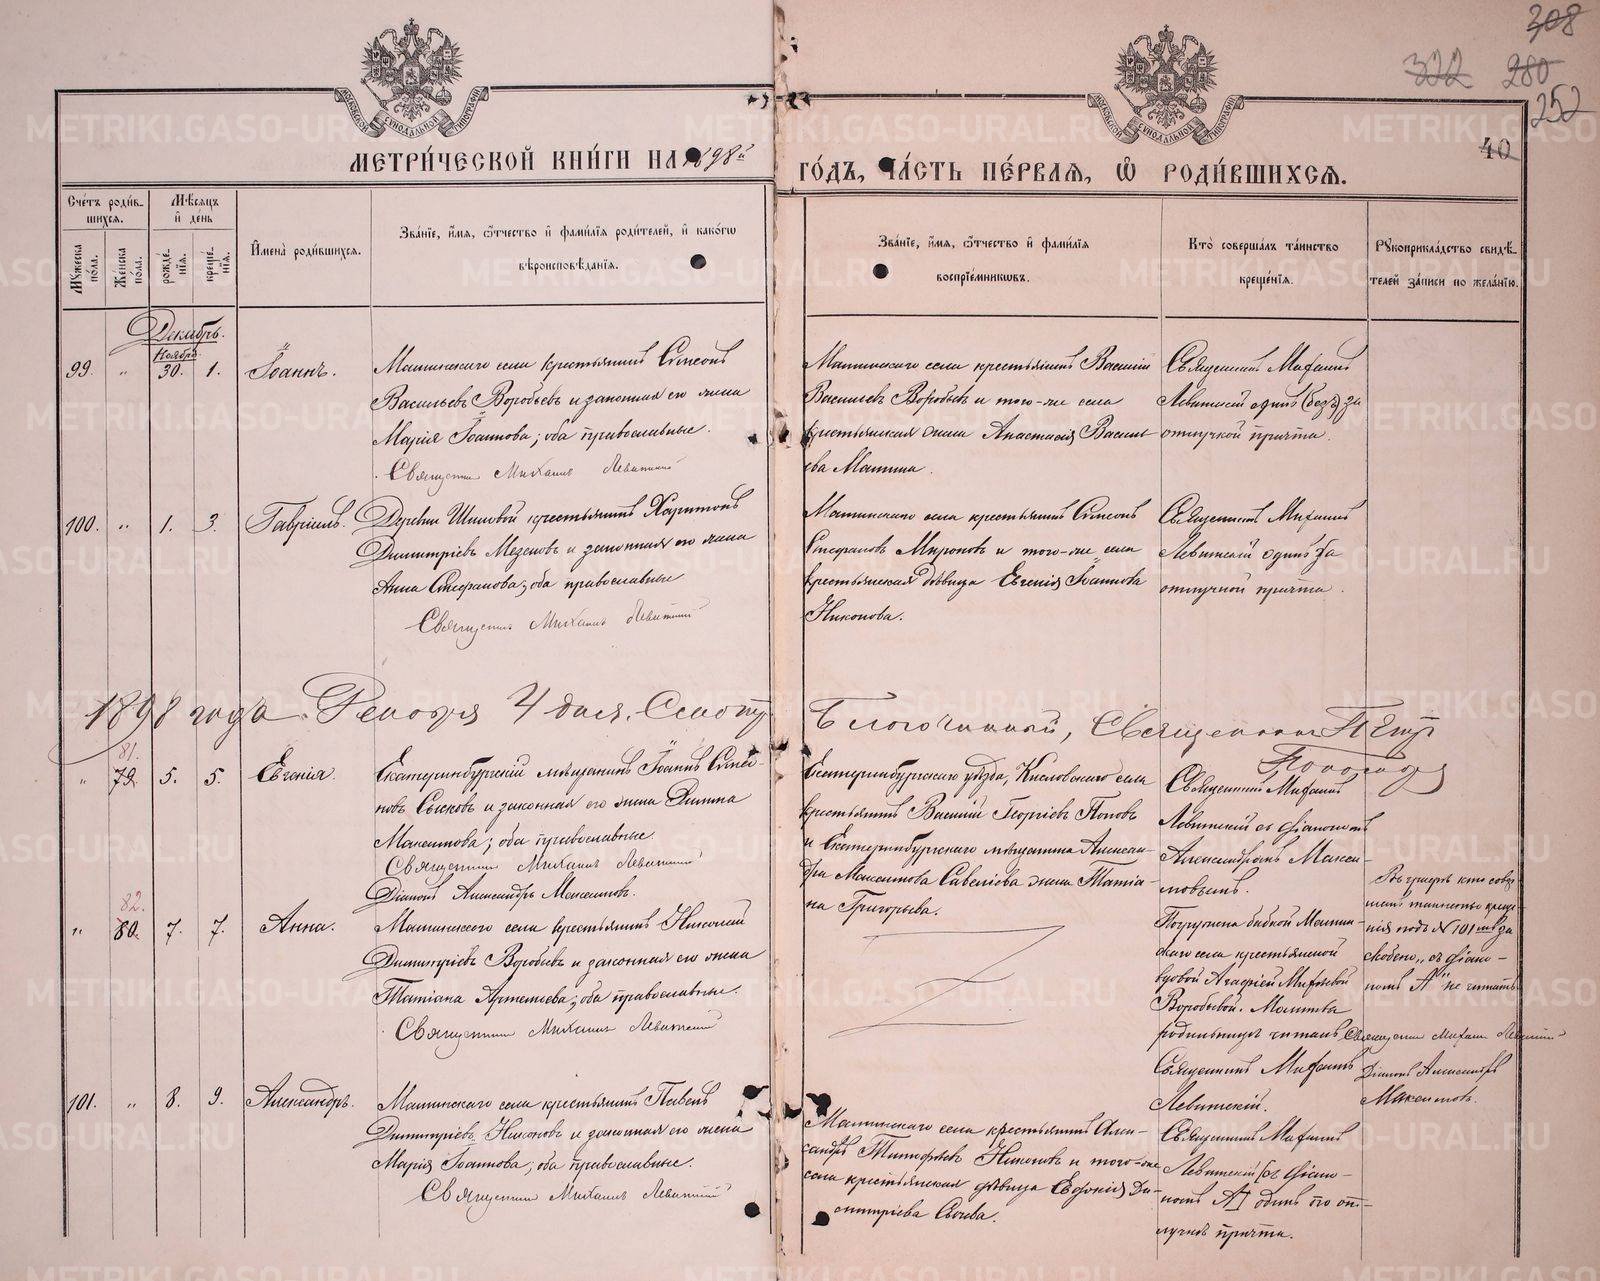 308
322 280
252
МОСКОВСКОЙ СѴНОДАЛЬНОЙ ТИПОГРАФІИ
МОСКОВСКОЙ СѴНОДАЛЬНОЙ ТИПОГРАФІИ
40
МЕТРИ́ЧЕСКОЙ КНИ́ГИ НА 1898й ГО́ДЪ, ЧА́СТЬ ПЕ́РВАѦ, Ѽ РОДИ́ВШИХСѦ.
Сче́тъ роди́в-
шихсѧ.
Мѹ́жеска по́ла.
Же́нска по́ла.
Мѣ́сѧцъ
и҆ де́нь
рожде́нїѧ.
креще́нїѧ.
И҆мена̀ роди́вшихсѧ.
Зва́нїе, и҆́мѧ, ѻ҆́тчество и҆ фами́лїѧ роди́телей, и҆ како́гѡ
вѣроисповѣ́данїѧ.
Зва́нїе, и҆́мѧ, ѻ҆́тчество и҆ фами́лїѧ
воспрїе́мникѡвъ.
Кто̀ соверша́лъ та́инство
креще́нїѧ.
Рѹкоприкла́дство свидѣ́-
телей за́писи по жела́нїю.
Декабрь.
Ноябрь
99. " 30. 1. Іоаннъ.
Маминскаго села крестьянинъ Симеонъ
Васильевъ Воробьевъ и законная его жена
Марія Іоаннова; оба православные.
Священникъ Михаилъ Левитскій
Маминскаго села крестьянинъ Василій
Васильевъ Воробьевъ и того-же села
крестьянская жена Анастасія Василь
ева Мамина.
Священникъ Михаилъ
Левитскій одинъ (безъ) за
отлучкой причта.
100. " 1. 3. Гавріилъ.
Деревни Шиловой крестьянинъ Харитонъ
Димитріевъ Мезеновъ и законная его жена
Анна Стефанова; оба православные
Священникъ Михаилъ Левитскій
Маминскаго села крестьянинъ Симеонъ
Стефановъ Мироновъ и того-же села
крестьянская дѣвица Евгенія Іоаннова
Никонова.
Священникъ Михаилъ
Левитскій одинъ за
отлучкой причта.
1898 года Декабря 4 дня. Смотр.
Благочинный, Священникъ Петръ
81.
" 79. 5. 5. Евгенія.
Екатеринбургскій мѣщанинъ Іоаннъ Симео-
новъ Сысковъ и законная его жена
Максимова; оба православные.
Священникъ Михаилъ Левитскій
Діаконъ Александръ Максимовъ.
Екатеринбургскаго уѣзда, Кисловскаго села
крестьянинъ Василій Георгіевъ Поповъ
и Екатеринбургскаго мѣщанина Алексан-
дра Максимова Савельева жена Татіа-
на Григорьева.
Священникъ Михаилъ
Левитскій съ діакономъ
Александромъ Макси-
мовымъ.
82.
" 80. 7. 7. Анна.
Маминскаго села крестьянинъ Николай
Димитріевъ Воробьевъ и законная его жена
Татіана Артемьева; оба православные.
Священникъ Михаилъ Левитскій
Погружена бабкой Мамин-
скаго села крестьянской
вдовой Агафіей
Воробьевой. Молитвы
родильницѣ читалъ
Священникъ Михаилъ
Левитскій.
Въ графѣ кто совер-
шалъ таинство креще-
нія подъ № 101 мъ за
скобкою, "съ діако-
номъ А" не читать.
Священникъ Михаилъ Левитскій
Діаконъ Александръ
Максимовъ.
101. " 8. 9. Александръ.
Маминскаго села крестьянинъ Павелъ
Димитріевъ Никоновъ и законная его жена
Марія Іоаннова; оба православные.
Священникъ Михаилъ Левитскій
Маминскаго села крестьянинъ Алек-
сандръ Тимофѣевъ Никоновъ и того-же
села крестьянская дѣвица Евдокія Ди-
митріева Сычева.
Священникъ Михаилъ
Левитскій (съ діако-
номъ А] одинъ по от-
лучкѣ причта.
METRIKI.GASO-URAL.RU